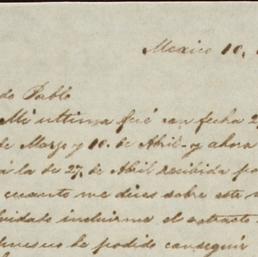 Mexico 10.
do Pablo
Mi ultima fué con fecha 2
de Marzo y 10. de Abril y ahora
á la de 27. de Abril recibida po
cuanto me dices sobre este
incluirme el extracto
he podido conseguir